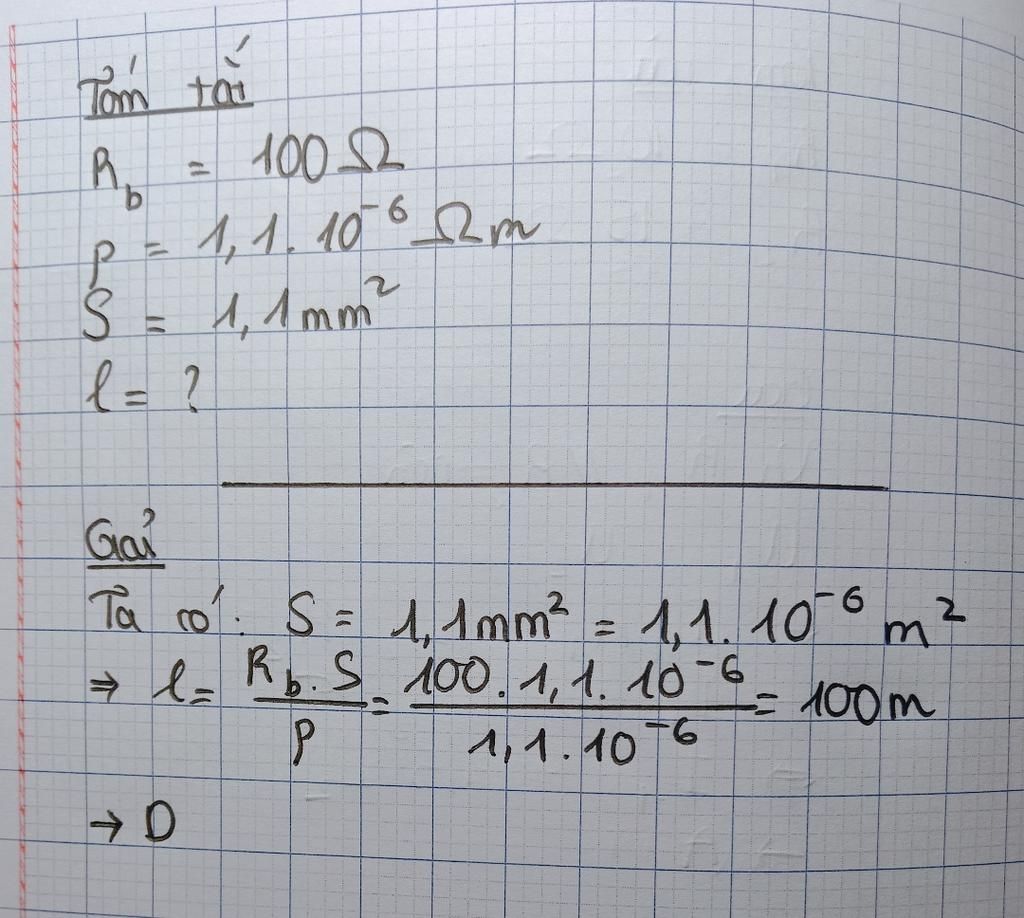 Tóm tắt
R_b = 100 Ω
ρ = 1,1. 10⁻⁶ Ωm
S = 1,1 mm²
l = ?
Giải
Ta có: S = 1,1mm² = 1,1. 10⁻⁶ m²
⇒ l = (R_b. S)/ρ = (100. 1,1. 10⁻⁶)/(1,1. 10⁻⁶) = 100m
→ D